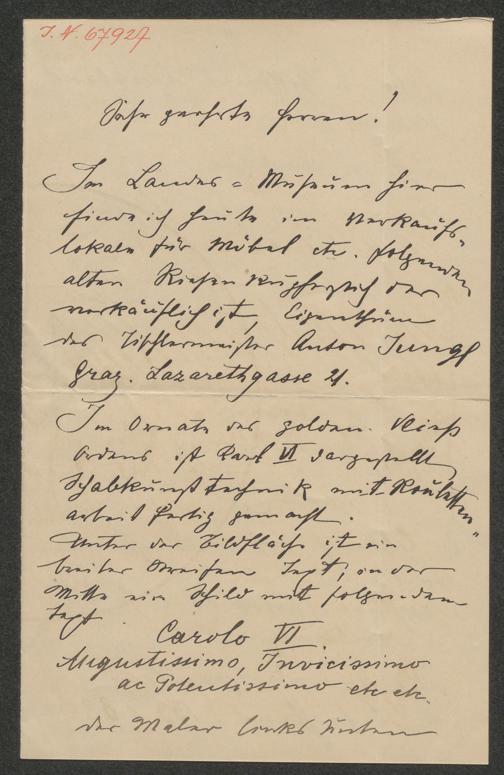 J. N. 67927
Sehr geehrte Herren!
Im Landes = Museum hier
finde ich heute im Verkaufs-
lokale für Möbel etc. folgenden
alten Riesen Kupferstich der
verkäuflich ist, Eigenthum
des Tischlermeister Anton Jungl
Graz. Lazarethgasse 21.
Im Ornate des golden. Vließ
Ordens ist Carl VI dargestellt
Schabkunst technik mit Rouletten
arbeit fertig gemacht.
Unter der Bildfläche ist ein
breiter Streifen Text, in der
Mitte ein Schild mit folgendem
Text
Carolo VI.
Augustissimo, Invicissimo
ac Potentissimo etc etc.
der Maler links unten